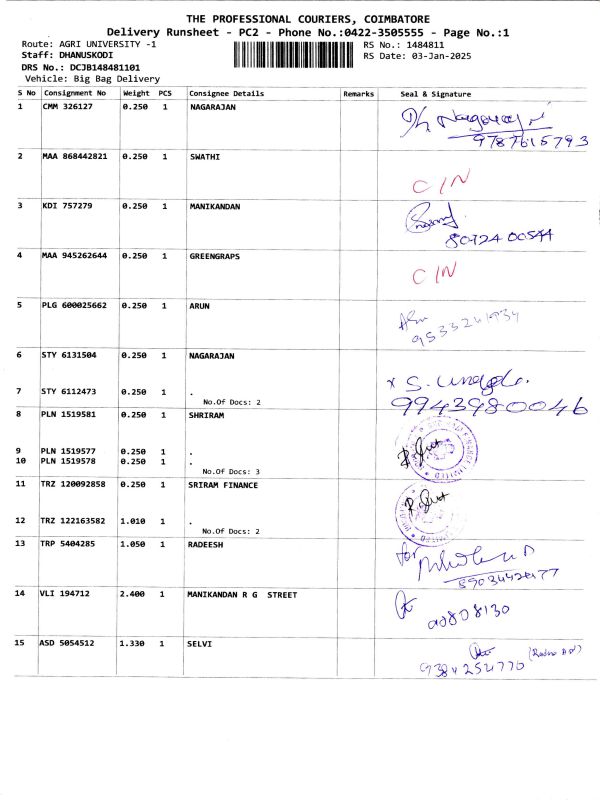 THE PROFESSIONAL COURIERS, COIMBATORE
Delivery Runsheet - PC2 - Phone No.:0422-3505555 - Page No.:1
Route: AGRI UNIVERSITY -1 RS No.: 1484811
Staff: DHANUSKODI RS Date: 03-Jan-2025
DRS No.: DCJB148481101
Vehicle: Big Bag Delivery
S No Consignment No Weight PCS Consignee Details Remarks Seal & Signature
1 CMM 326127 0.250 1 NAGARAJAN
9787615793
2 MAA 868442821 0.250 1 SWATHI
C/N
3 KDI 757279 0.250 1 MANIKANDAN
4 MAA 945262644 0.250 1 GREENGRAPS
C/N
5 PLG 600025662 0.250 1 ARUN
6 STY 6131504 0.250 1 NAGARAJAN
7 STY 6112473 0.250 1 .
No.Of Docs: 2
9943980046
8 PLN 1519581 0.250 1 SHRIRAM
9 PLN 1519577 0.250 1 .
10 PLN 1519578 0.250 1 .
No.Of Docs: 3
11 TRZ 120092858 0.250 1 SRIRAM FINANCE
12 TRZ 122163582 1.010 1 .
No.Of Docs: 2
13 TRP 5404285 1.050 1 RADEESH
for
14 VLI 194712 2.400 1 MANIKANDAN R G STREET
15 ASD 5054512 1.330 1 SELVI